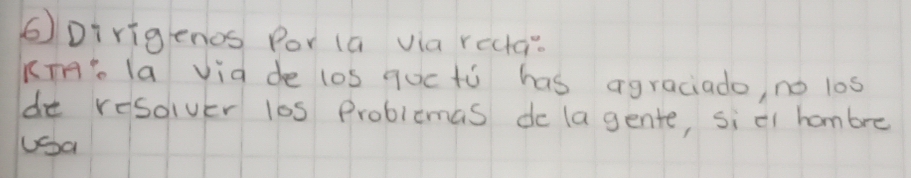 6) Dirigenos Por la via recta:
RTA: la via de los que tú has agraciado, no los
de resolver los Problemas de la gente, si el hombre
usa